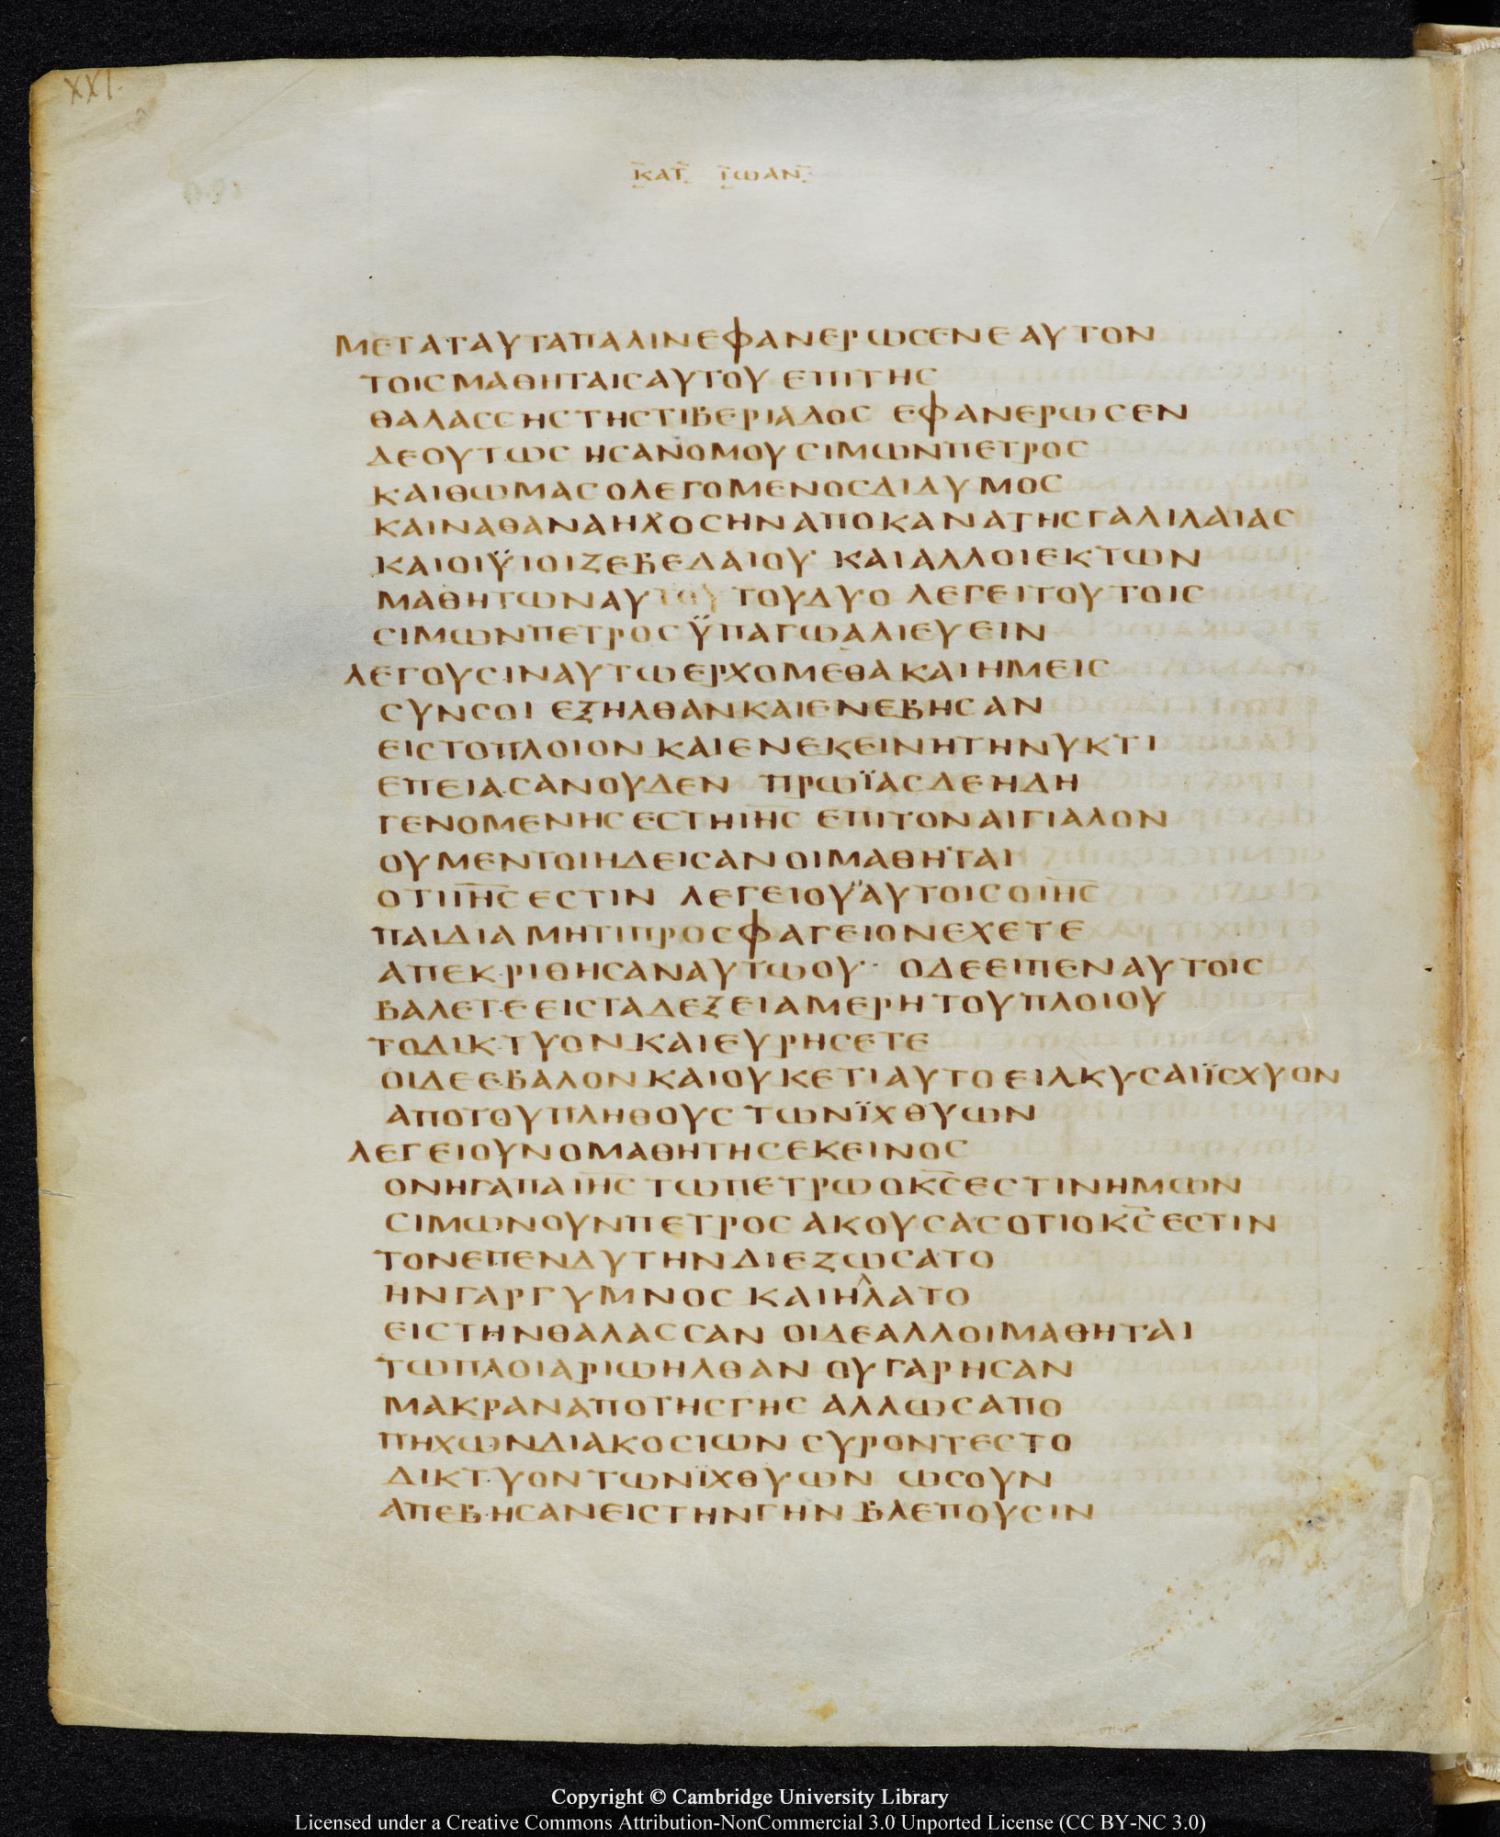 XXI.
ΚΑΤ ΙΩΑΝ
ΜΕΤΑΤΑΥΤΑΠΑΛΙΝΕΦΑΝΕΡΩCΕΝΕΑΥΤΟΝ
ΤΟΙCΜΑΘΗΤΑΙCΑΥΤΟΥ ΕΠΙΤΗC
ΘΑΛΑCCΗCΤΗCΤΙΒΕΡΙΑΔΟC ΕΦΑΝΕΡΩCΕΝ
ΔΕΟΥΤΩC ΗCΑΝΟΜΟΥCΙΜΩΝΠΕΤΡΟC
ΚΑΙΘΩΜΑCΟΛΕΓΟΜΕΝΟCΔΙΔΥΜΟC
ΚΑΙΝΑΘΑΝΑΗΛΟCΗΝΑΠΟΚΑΝΑΤΗCΓΑΛΙΛΑΙΑC
ΚΑΙΟΙΫΙΟΙΖΕΒΕΔΑΙΟΥ ΚΑΙΑΛΛΟΙΕΚΤΩΝ
ΜΑΘΗΤΩΝΑΥΤΟΥΤΟΥΔΥΟ ΛΕΓΕΙΤΟΥΤΟΙC
CΙΜΩΝΠΕΤΡΟCΫΠΑΓΩΑΛΙΕΥΕΙΝ
ΛΕΓΟΥCΙΝΑΥΤΩΕΡΧΟΜΕΘΑΚΑΙΗΜΕΙC
CΥΝCΟΙ ΕΞΗΛΘΑΝΚΑΙΕΝΕΒΗCΑΝ
ΕΙCΤΟΠΛΟΙΟΝ ΚΑΙΕΝΕΚΕΙΝΗΤΗΝΥΚΤΙ
ΕΠΕΙΑCΑΝΟΥΔΕΝ ΠΡΩΪΑCΔΕΗΔΗ
ΓΕΝΟΜΕΝΗCΕCΤΗΙ̅Η̅C̅ ΕΠΙΤΟΝΑΙΓΙΑΛΟΝ
ΟΥΜΕΝΤΟΙΗΔΕΙCΑΝΟΙΜΑΘΗΤΑΙ
ΟΤΙΙ̅Η̅C̅ΕCΤΙΝ ΛΕΓΕΙΟΥ᾿ΑΥΤΟΙCΟΙ̅Η̅C̅
ΠΑΙΔΙΑ ΜΗΤΙΠΡΟCΦΑΓΕΙΟΝΕΧΕΤΕ
ΑΠΕΚΡΙΘΗCΑΝΑΥΤΩΟΥ· ΟΔΕΕΙΠΕΝΑΥΤΟΙC
ΒΑΛΕΤΕΕΙCΤΑΔΕΞΕΙΑΜΕΡΗΤΟΥΠΛΟΙΟΥ
ΤΟΔΙΚΤΥΟΝΚΑΙΕΥΡΗCΕΤΕ
ΟΙΔΕΕΒΑΛΟΝΚΑΙΟΥΚΕΤΙΑΥΤΟΕΙΛΚΥCΑΙΪCΧΥΟΝ
ΑΠΟΤΟΥΠΛΗΘΟΥC ΤΩΝΪΧΘΥΩΝ
ΛΕΓΕΙΟΥΝΟΜΑΘΗΤΗCΕΚΕΙΝΟC
ΟΝΗΓΑΠΑΙ̅Η̅C̅ ΤΩΠΕΤΡΩΟΚ̅C̅ΕCΤΙΝΗΜΩΝ
CΙΜΩΝΟΥΝΠΕΤΡΟC ΑΚΟΥCΑCΟΤΙΟΚ̅C̅ΕCΤΙΝ
ΤΟΝΕΠΕΝΔΥΤΗΝΔΙΕΖΩCΑΤΟ
ΗΝΓΑΡΓΥΜΝΟC ΚΑΙΗΛΛΑΤΟ
ΕΙCΤΗΝΘΑΛΑCCΑΝ ΟΙΔΕΑΛΛΟΙΜΑΘΗΤΑΙ
ΤΩΠΛΟΙΑΡΙΩΗΛΘΑΝ ΟΥΓΑΡΗCΑΝ
ΜΑΚΡΑΝΑΠΟΤΗCΓΗC ΑΛΛΩCΑΠΟ
ΠΗΧΩΝΔΙΑΚΟCΙΩΝ CΥΡΟΝΤΕCΤΟ
ΔΙΚΤΥΟΝΤΩΝΪΧΘΥΩΝ ΩCΟΥΝ
ΑΠΕΒΗCΑΝΕΙCΤΗΝΓΗΝ ΒΛΕΠΟΥCΙΝ
Copyright © Cambridge University Library
Licensed under a Creative Commons Attribution-NonCommercial 3.0 Unported License (CC BY-NC 3.0)